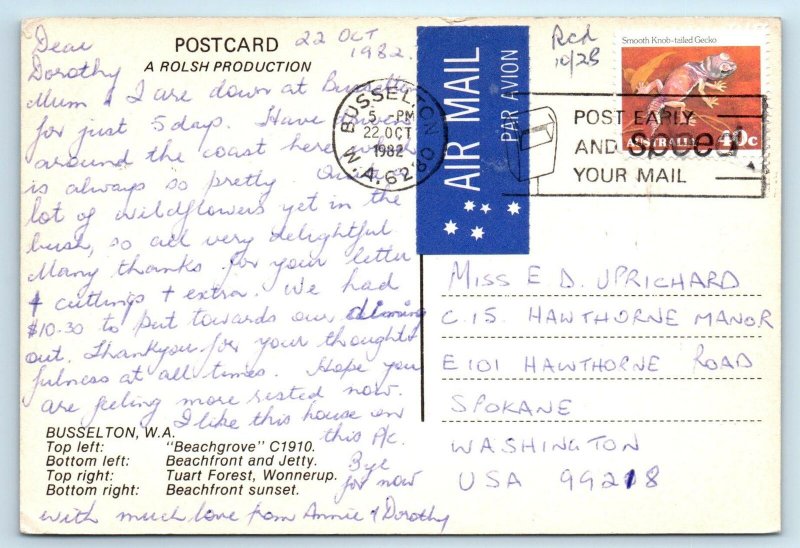 POSTCARD
A ROLSH PRODUCTION
22 OCT
1982.
Dear
Dorothy
Mum & I are down at Busselton
for just 5 days. Have driven
around the coast here which
is always so pretty. Quite a
lot of wildflowers yet in the
bush, so all very delightful
Many thanks for your letter
+ cuttings + extra. We had
$10.30 to put towards our dinning
out. Thankyou for your thought
fulness at all times. Hope you
are feeling more rested now.
I like this house on
this P/c.
Bye
for now
with much love from Annie & Dorothy
BUSSELTON, W.A.
Top left: "Beachgrove" C1910.
Bottom left: Beachfront and Jetty.
Top right: Tuart Forest, Wonnerup.
Bottom right: Beachfront sunset.
BUSSELTON
5 - PM
22 OCT
1982
W.A. 6280
AIR MAIL
PAR AVION
Rcd
10/28
Smooth Knob-tailed Gecko
AUSTRALIA 40c
POST EARLY
AND speed
YOUR MAIL
MISS E. D. UPRICHARD
C.15. HAWTHORNE MANOR
E101 HAWTHORNE ROAD
SPOKANE
WASHINGTON
USA 99218